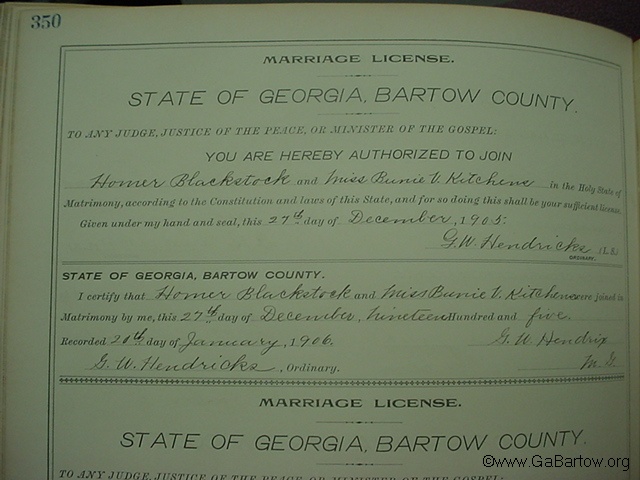 350
MARRIAGE LICENSE.
STATE OF GEORGIA, BARTOW COUNTY.
TO ANY JUDGE, JUSTICE OF THE PEACE, OR MINISTER OF THE GOSPEL:
YOU ARE HEREBY AUTHORIZED TO JOIN
Homer Blackstock and Miss Bunie V. Kitchens in the Holy State of
Matrimony, according to the Constitution and laws of this State, and for so doing this shall be your sufficient license.
Given under my hand and seal, this 27th day of December, 1905.
G.W. Hendricks (L.S.)
ORDINARY.
STATE OF GEORGIA, BARTOW COUNTY.
I certify that Homer Blackstock and Miss Bunie V. Kitchens were joined in
Matrimony by me, this 27th day of December, nineteen Hundred and five.
Recorded 20th day of January, 1906. G. W. Hendrix
G. W. Hendricks, Ordinary. M. G.
MARRIAGE LICENSE.
STATE OF GEORGIA, BARTOW COUNTY.
TO ANY JUDGE, JUSTICE OF THE PEACE OR MINISTER OF THE GOSPEL:
©www.GaBartow.org